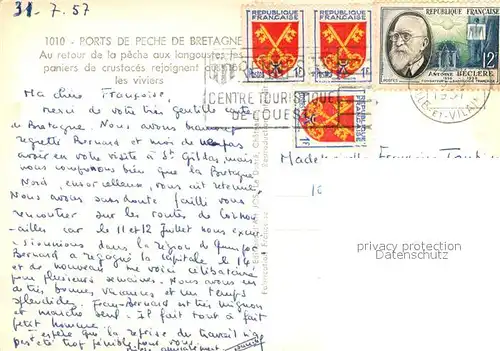 31. 7. 57
1010 - PORTS DE PECHE DE BRETAGNE
Au retour de la pêche aux langoustes, les
paniers de crustacés rejoignent
les viviers
REPUBLIQUE FRANÇAISE
REPUBLIQUE FRANÇAISE
REPUBLIQUE FRANÇAISE
POSTES 1F
ANTOINE BECLERE
12F
CENTRE TOURISTIQUE
DE L'OUEST
ET-VILAINE
Ma chère Françoise,
merci de votre très gentille carte
de Bretagne. Nous avons beaucoup
regretté Bernard et moi de ne pas
avoir eu votre visite à St Gildas, mais
nous comprenons bien que la Bretagne
Nord, ensorceleuse, vous ait retenue.
Nous avons sans doute failli vous
rencontrer sur les routes de Cornou-
ailles car le 11 et 12 Juillet nous excur-
sionnions dans la région de Quimper
Bernard a regagné la capitale le 14
et de nouveau me voici célibataire
pour plusieurs semaines. Nous avons eu
de très bonnes vacances et un temps
splendide. Jean-Bernard est très mignon
et marche seul. Il fait tout à fait
petit homme.
J'espère que la reprise du travail n'a pas
été trop pénible pour vous
Mademoiselle Françoise
16
privacy protection
Datenschutz